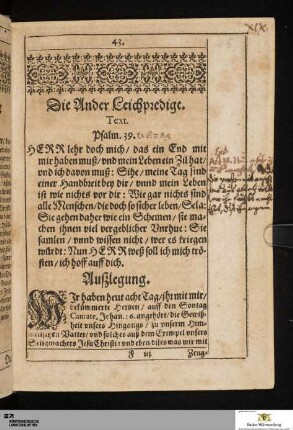 XIX.
43.
Die Ander Leichpredigt.
Text.
Psalm. 39.
HERR lehr doch mich/ das ein End mit
mir haben muß/ vnd mein Leben ein Zil hat/
vnd ich davon muß: Sihe/ meine Tag sind
einer Handbreit bey dir/ vnnd mein Leben
ist wie nichts vor dir: Wie gar nichts sind
alle Menschen/ die doch so sicher leben/ Sela:
Sie gehen daher wie ein Schemen/ sie ma-
chen jhnen viel vergeblicher Vnrhue: Sie
samlen/ vnnd wissen nicht/ wer es kriegen
würdt: Nun HERR weß soll ich mich trö-
sten/ ich hoff auff dich.
Außlegung.
WJr haben heut acht Tag/ jhr mit mir/
bekümmerte Hertzen/ auff den Sontag
Cantate, Johan. 16. angehört/ die Gewiß-
heit vnsers Hingangs/ zu vnserm Him-
lischen Vatter/ vnd solches auß dem Exempel vnsers
Seligmachers Jesu Christi: vnd eben dises was wir mit
F iij Zeug-
Baden-Württemberg